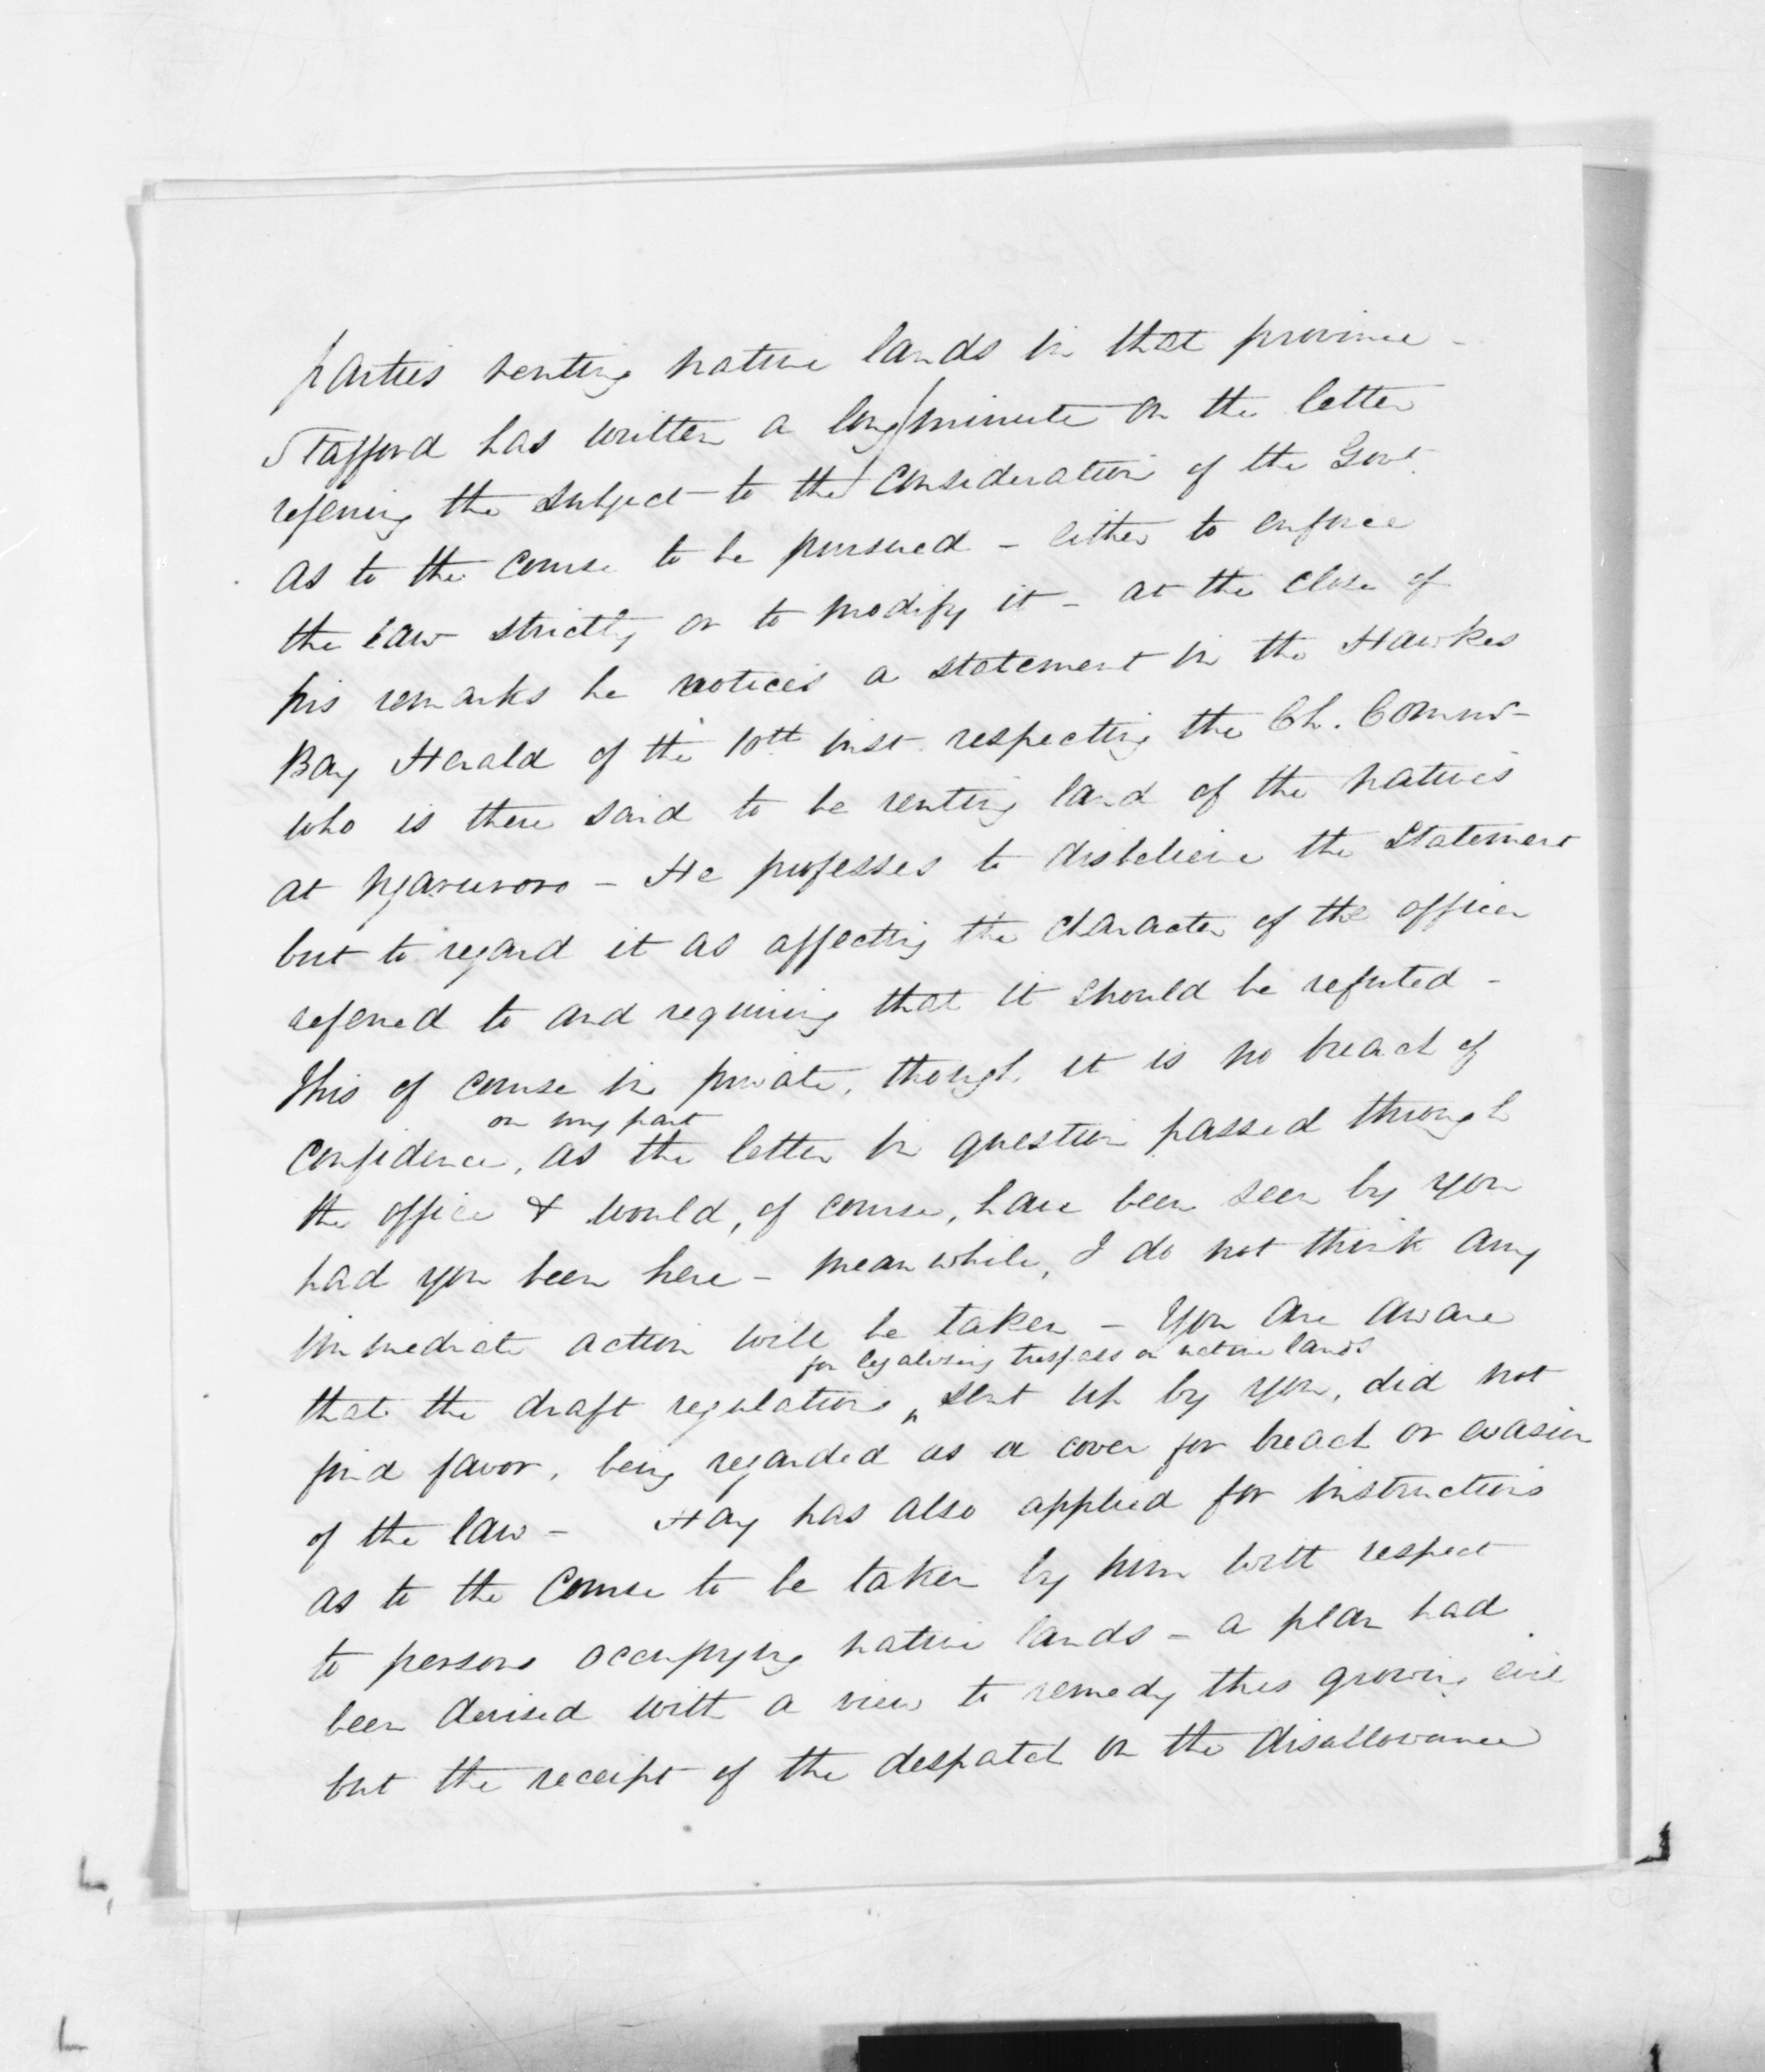 parties renting native lands in that province -
Stafford has written a long minute on the letter
refering the subject to the consideration of the Govt.
as to the course to be pursued - either to enforce
the law strictly or to modify it - at the close of
his remarks he notices a statement in the Hawkes
Bay Herald of the 10th inst. respecting the Ch. Commr
who is there said to be renting land of the natives
at Ngaruroro - He professes to disbelieve the statement
but to regard it as affecting the character of the officer
refered to and requiring that it should be refuted -
This of course in private, though it is no breach of
on my part
confidence, as the letter in question passed through
the office & would, of course, have been seen by you
had you been here - meanwhile, I do not think any
immediate action will be taken - You are aware
for legalising trespass on native lands
that the draft regulations sent up by you, did not
find favor, being regarded as a cover for breach or evasion
of the law - Hay has also applied for instructions
as to the course to be taken by him with respect
to persons occupying native lands - a plan had
been devised with a view to remedy this growing evil
but the receipt of the despatch on the disallowance